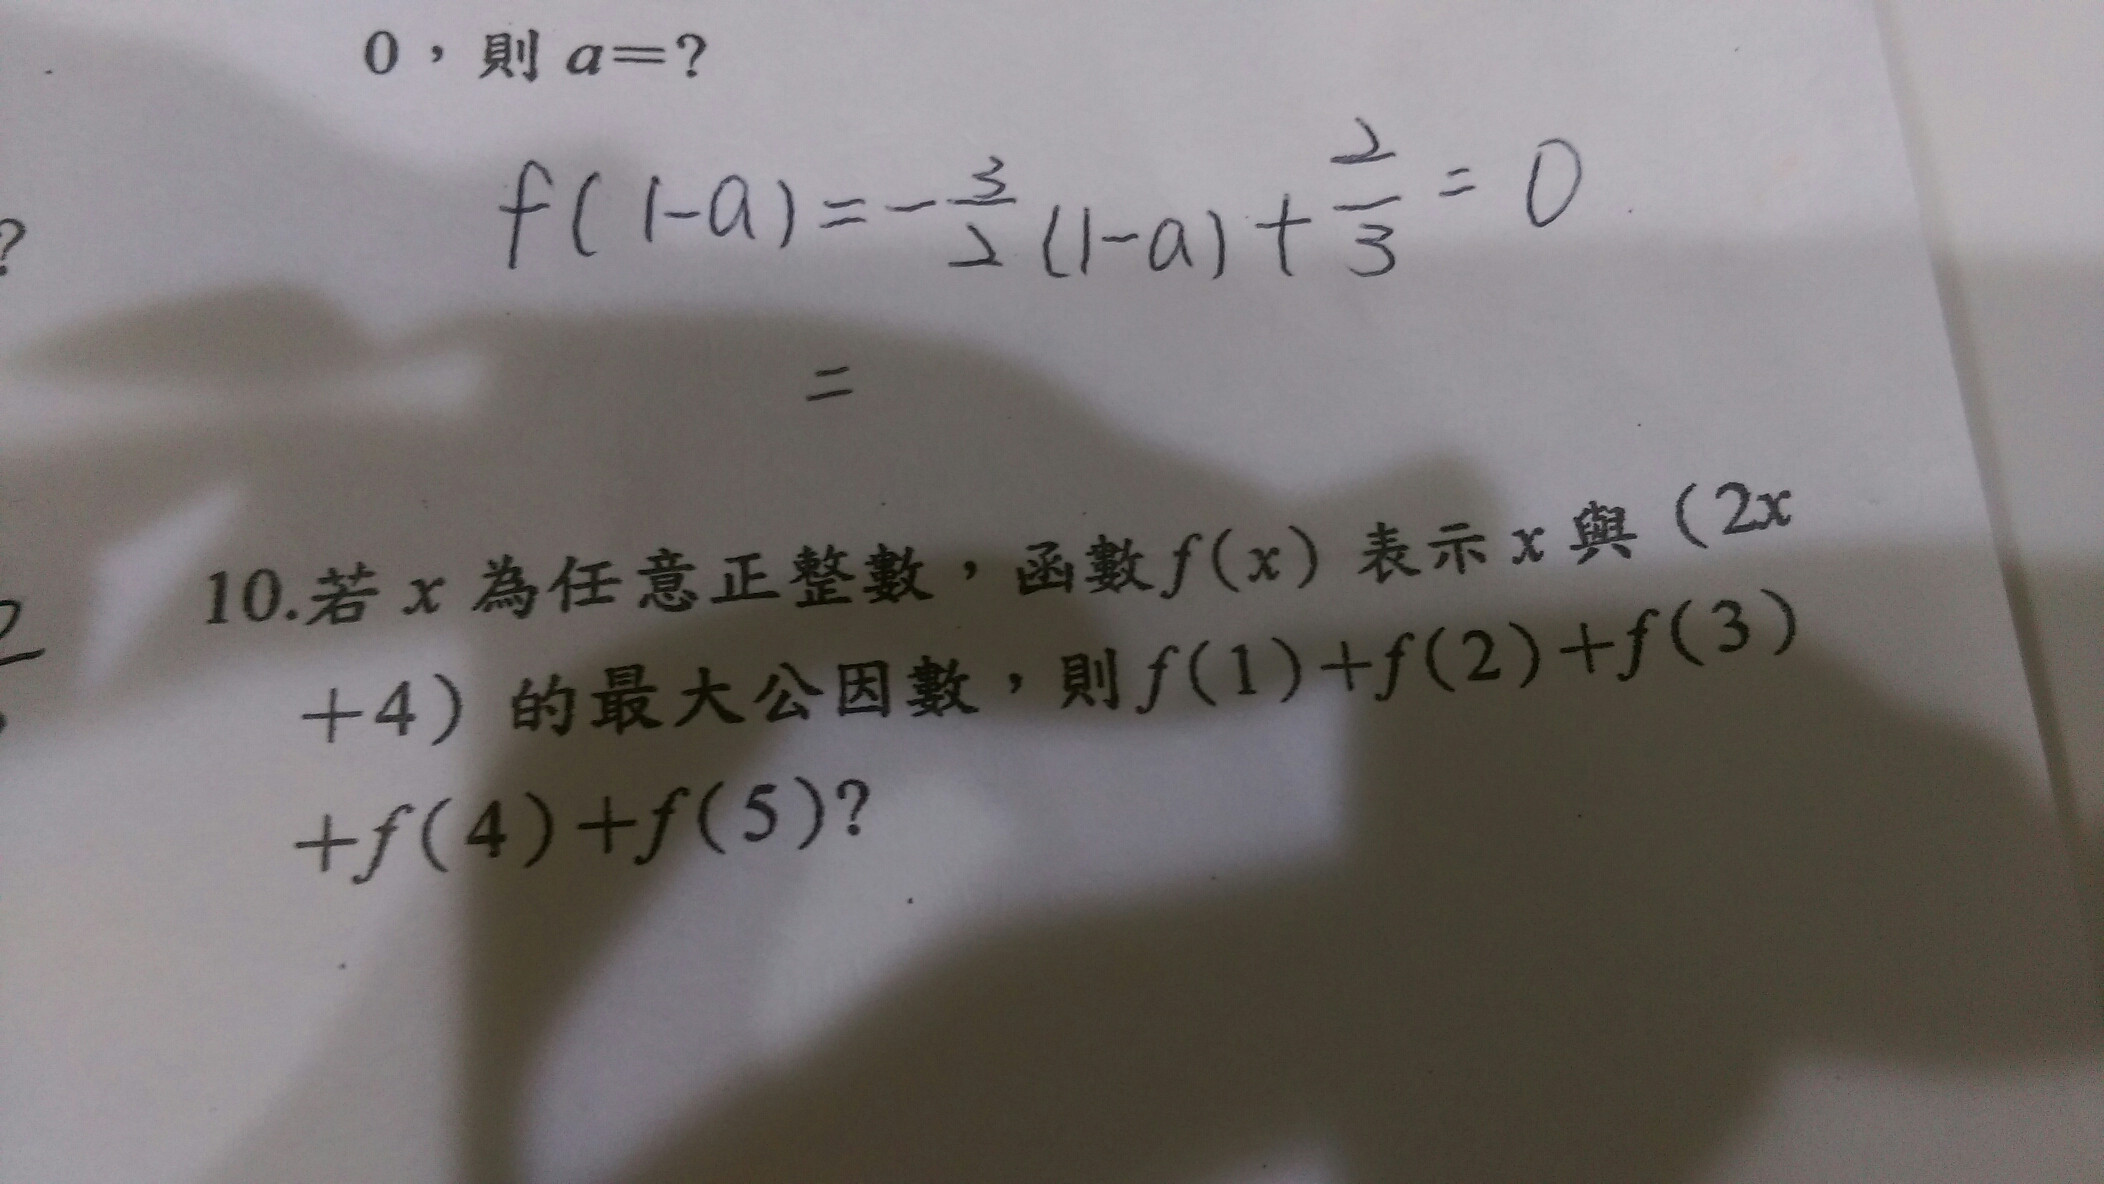 0，則 a=?
f(1-a)=-3/2(1-a)+2/3=0
?
=
10.若 x 為任意正整數，函數f(x) 表示 x 與（2x
+4）的最大公因數，則f(1)+f(2)+f(3)
+f(4)+f(5)?